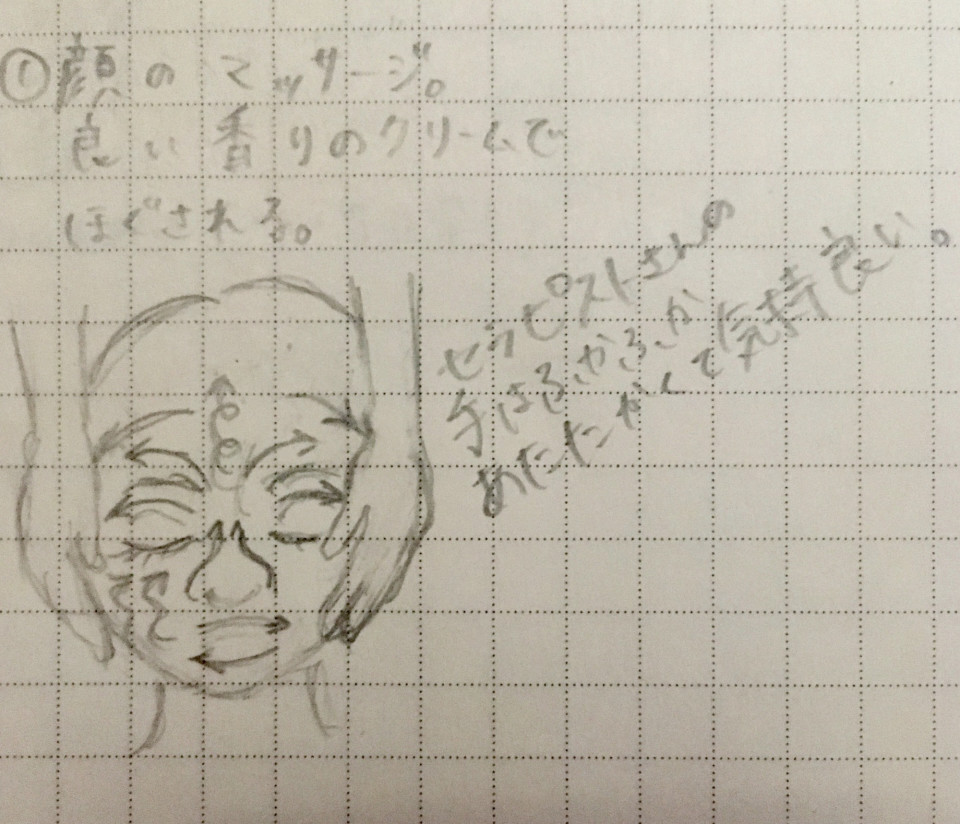 ①顔のマッサージ。
良い香りのクリームで
ほぐされる。
セラピストさんの
手はふかふか
あたたかくて気持良い。